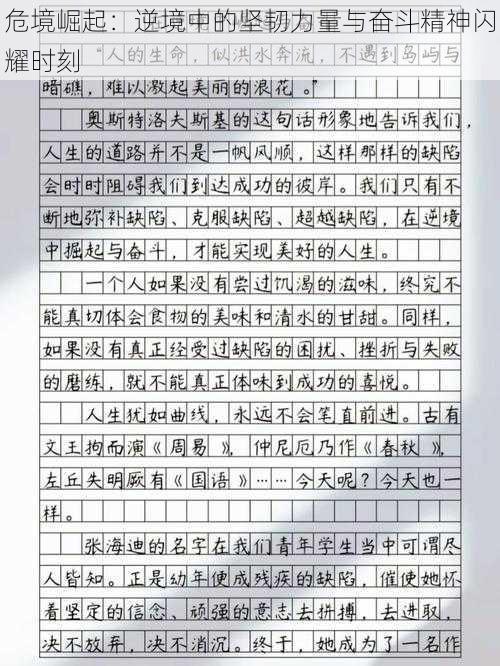 危境崛起：逆境中的坚韧力量与奋斗精神闪
耀时刻
“人的生命，似洪水奔流，不遇到岛屿与
暗礁，难以激起美丽的浪花。”
奥斯特洛夫斯基的这句话形象地告诉我们，
人生的道路并不是一帆风顺，这样那样的缺陷
会时时阻碍我们到达成功的彼岸。我们只有不
断地弥补缺陷、克服缺陷、超越缺陷，在逆境
中掘起与奋斗，才能实现美好的人生。
一个人如果没有尝过饥渴的滋味，终究不
能真切体会食物的美味和清水的甘甜。同样，
如果没有真正经受过缺陷的困扰、挫折与失败
的磨练，就不能真正体味到成功的喜悦。
人生犹如曲线，永远不会笔直前进。古有
文王拘而演《周易》，仲尼厄乃作《春秋》，
左丘失明厥有《国语》……今天呢？今天也一
样。
张海迪的名字在我们青年学生当中可谓尽
人皆知。正是幼年便成残疾的缺陷，催使她怀
着坚定的信念、顽强的意志去拼搏，去进取，
决不放弃，决不消沉。终于，她成为了一名作